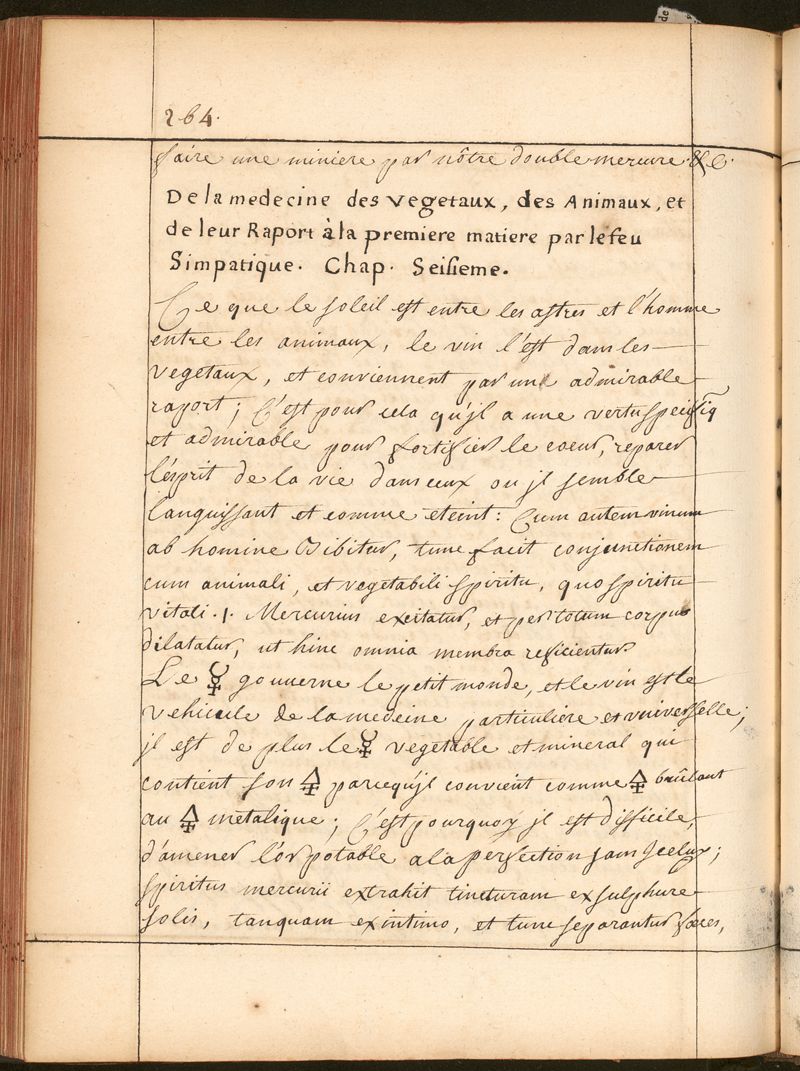 264.
faire une miniere par nôtre double mercure &c.
De la medecine des vegetaux, des Animaux, et
de leur Raport à la premiere matiere par le feu
Simpatique. Chap. Seisieme.
Ce que le soleil est entre les astres et l'homme
entre les animaux, le vin l'est dans les
vegetaux, et conviennent par une admirable
raport; C'est pour cela qu'jl a une vertu specifiq
et admirable pour fortifier le coeur, reparer
l'esprit de la vie dans ceux ou jl semble
languissant et comme eteint: Cum autem vinum
ab homine Bibitur, tunc facit conjunctionem
cum animali, et vegetabili spiritu, quo spiritu
vitali .1. Mercurius excitatur, et per totum corpus
dilatatur, ut hinc omnia membra reficientur.
Le ☿ gouuerne le petit monde, et le vin est le
vehicule de la medeine particuliere et vniverselle;
jl est de plus le ☿ vegetable et mineral qui
contient son 🜍 parcequ'jl convient comme 🜍 brûlant
au 🜍 metalique; C'est pourquoy jl est difficile,
d'amener l'or potable a la perfection sans Jceluy;
spiritus mercurii extrahit tincturam ex sulphure
solis, tanquam ex intimo, et tunc separantur fœces,